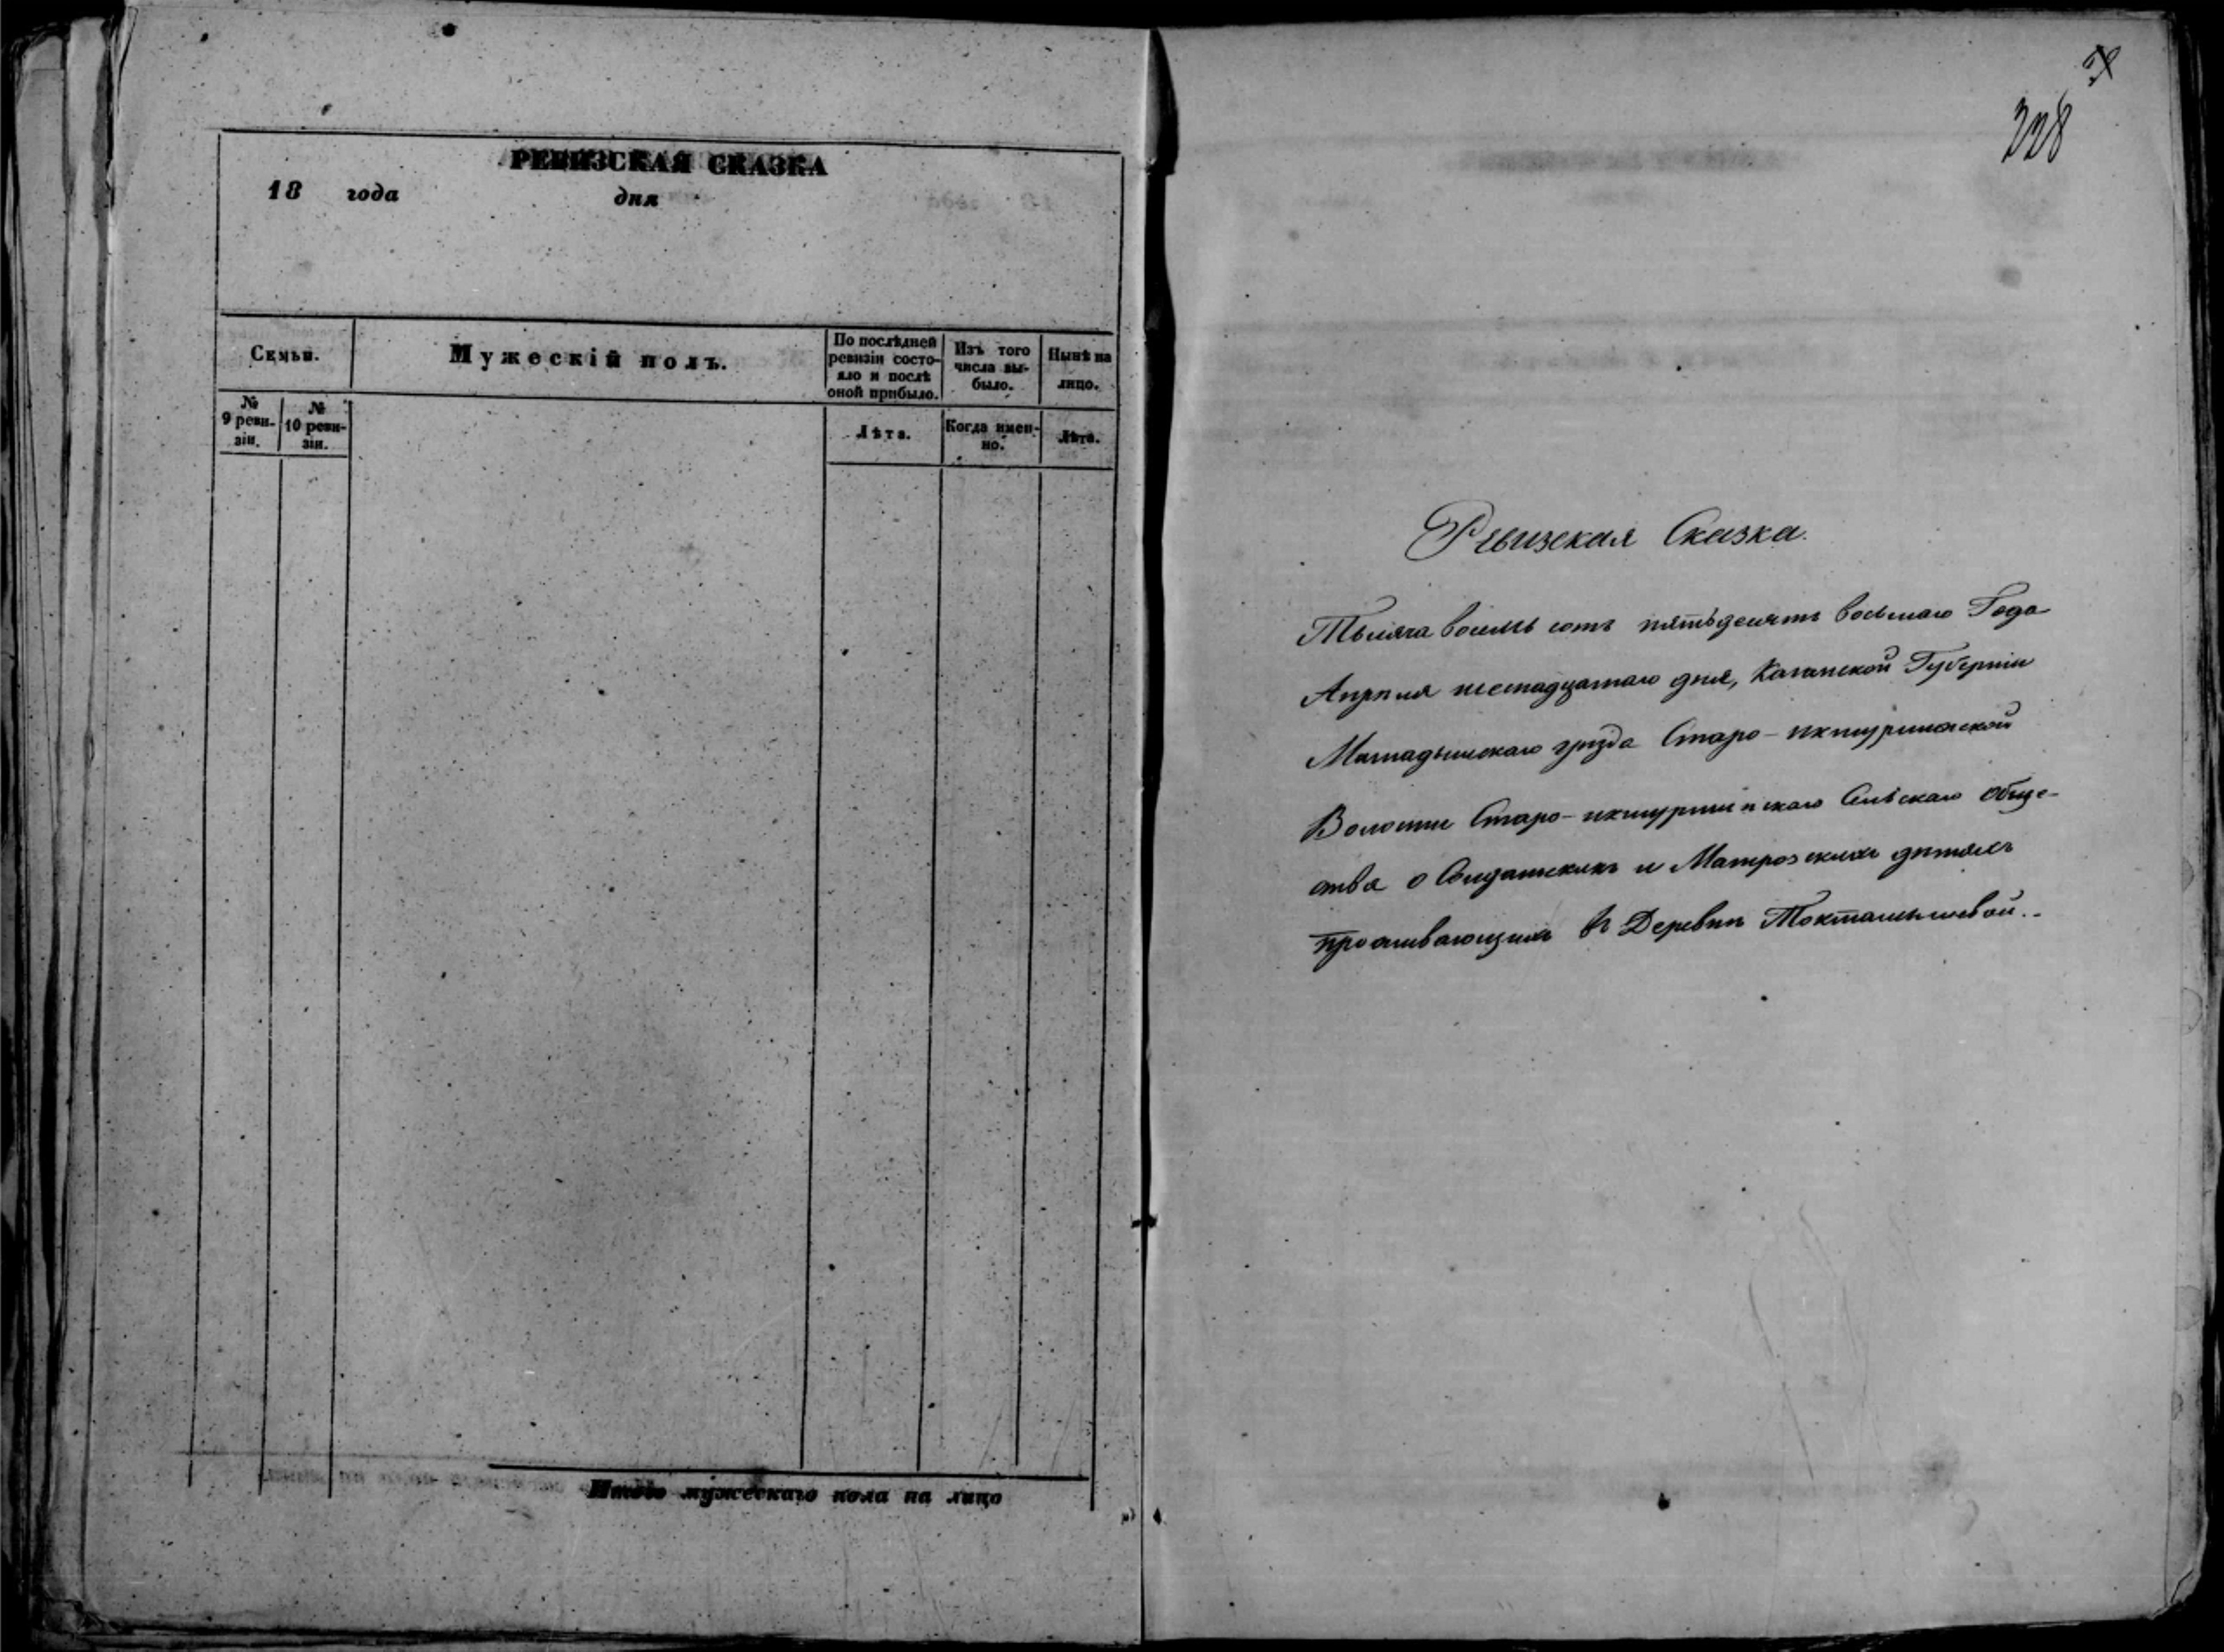 РЕВИЗСКАЯ СКАЗКА
18 года дня
Семьи.
Мужескій полъ.
По послѣдней ревизіи состояло и послѣ оной прибыло.
Изъ того числа выбыло.
Нынѣ на лицо.
№ 9 ревизіи.
№ 10 ревизіи.
Лѣта.
Когда именно.
Лѣта.
Итого мужескаго пола на лицо
228
Ревизская Сказка.
Тысяча восемь сотъ пятьдесятъ восьмаго Года
Апрѣля шестнадцатаго дня, Казанской Губерніи
Мамадышскаго уѣзда Старо-икшурминской
Волости Старо-икшурминскаго Сельскаго обще-
ства о Солдатскихъ и Матрозскихъ дѣтяхъ
проживающихъ въ Деревнѣ